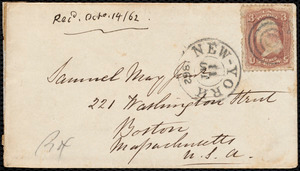 Rec'd. Oct. 14/62.
NEW-YORK
OCT
11
1862
3 3
Samuel May, Jr.
221 Washington Street
Boston
Massachusetts
U.S.A.